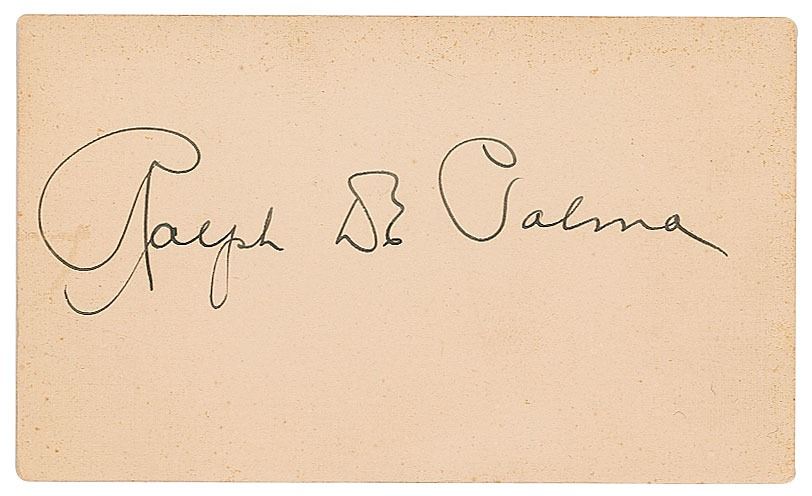 Ralph De Palma